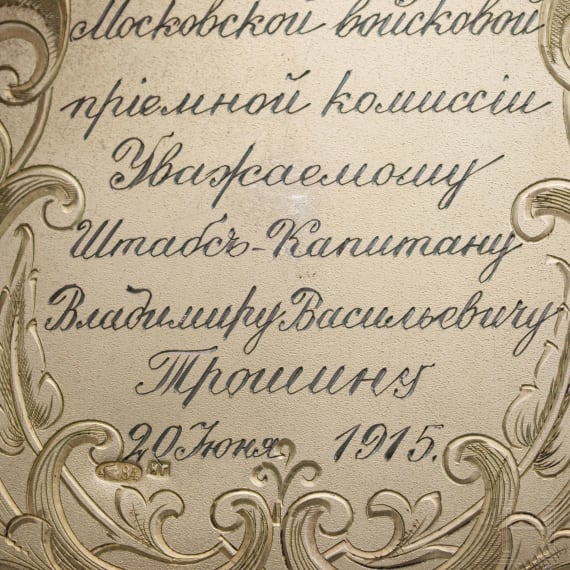 Московской войсковой
пріемной комиссіи
Уважаемому
Штабсъ-Капитану
Владимиру Васильевичу
Трошину
20 Іюня 1915.
84